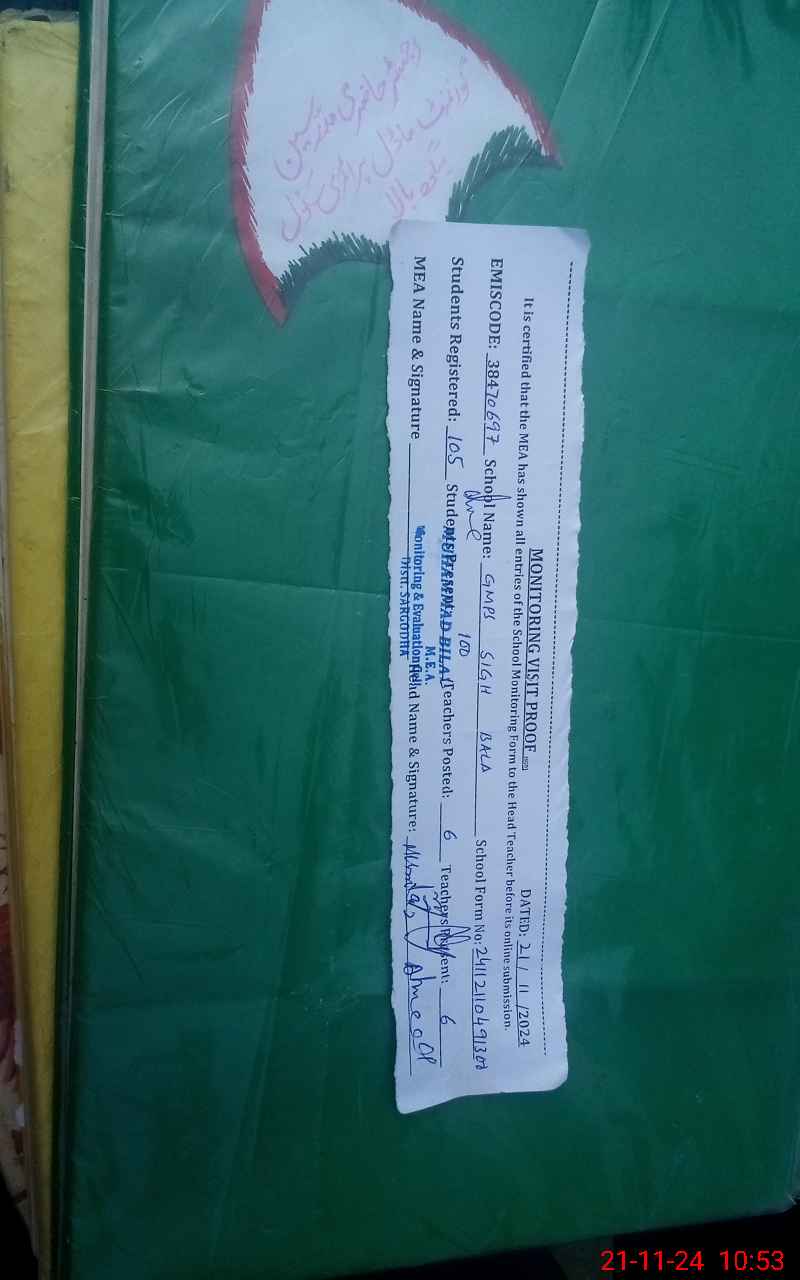 رجسٹر حاضری مدرسین
گورنمنٹ ماڈل پرائمری سکول
بالا
MONITORING VISIT PROOF
DATED: 21/11/2024
It is certified that the MEA has shown all entries of the School Monitoring Form to the Head Teacher before its online submission.
EMISCODE: 38470697 School Name: GMPS SIGH BALA School Form No: 24112110491300
Students Registered: 105 Students Present: 100 Teachers Posted: 6 Teachers Present: 6
MEA Name & Signature Head Name & Signature: Ahmed
MUHAMMAD BILAL
M.E.A.
Monitoring & Evaluation Cell
Distt. SARGODHA
21-11-24 10:53